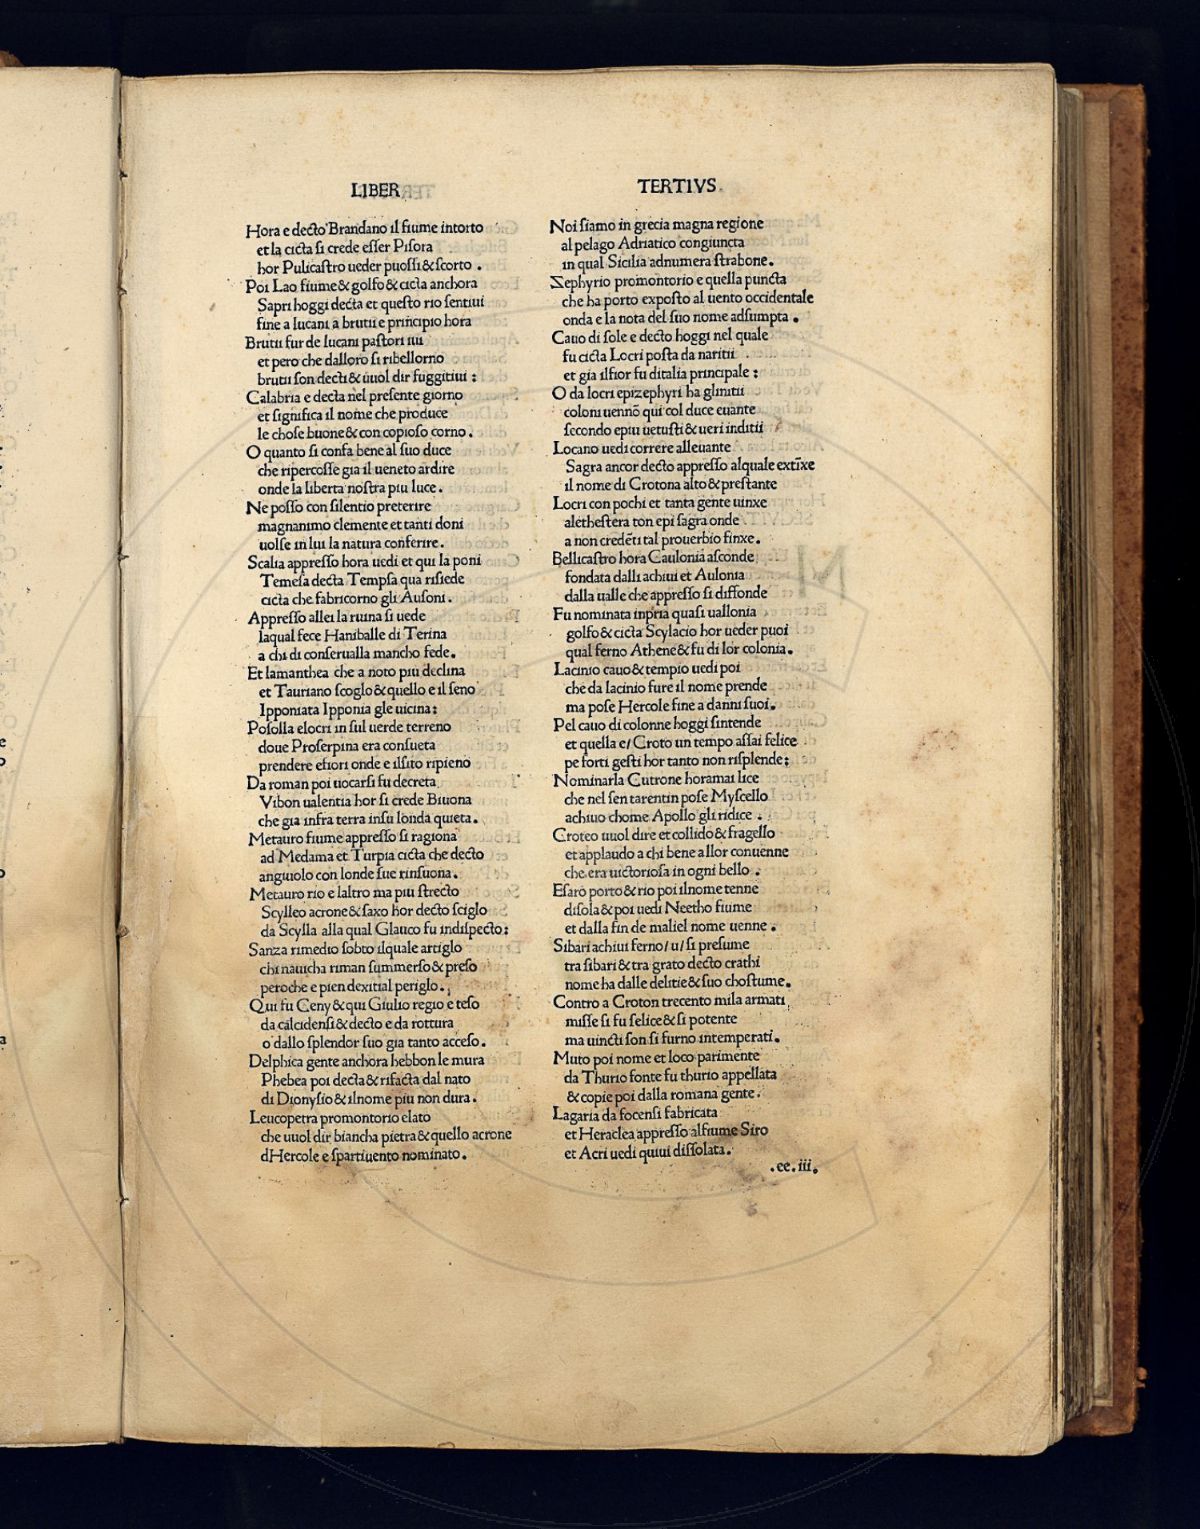 LIBER
TERTIVS.
Hora e decto Brandano il fiume intorto
et la cicta si crede esser Pisora
hor Pulicastro ueder puossi & scorto .
Poi Lao fiume & golfo & cicta anchora
Sapri hoggi decta et questo rio sentiui
fine a lucani a brutii e principio hora
Brutii fur de lucani pastori iui
et pero che dalloro si ribellorno
brutii son decti & uuol dir fuggitiui :
Calabria e decta nel presente giorno
et significa il nome che produce
le chose buone & con copioso corno .
O quanto si confa bene al suo duce
che ripercosse gia il ueneto ardire
onde la liberta nostra piu luce .
Ne posso con silentio preterire
magnanimo clemente et tanti doni
uolse in lui la natura conferire .
Scalia appresso hora uedi et qui la poni
Temesa decta Tempsa qua risiede
cicta che fabricorno gli Ausoni .
Appresso allei la ruina si uede
laqual fece Haniballe di Terina
a chi di conserualla mancho fede .
Et lamanthea che a noto piu declina
et Tauriano scoglo & quello e il seno
Ipponiata Ipponia gle uicina :
Posolla elocri in sul uerde terreno
doue Proserpina era consueta
prendere efiori onde e ilsito ripieno
Da roman poi uocarsi fu decreta
Vibon ualentia hor si crede Biuona
che gia infra terra insu londa quieta .
Metauro fiume appresso si ragiona
ad Medama et Turpia cicta che decto
angiuolo con londe sue rinsuona .
Metauro rio e laltro ma piu strecto
Scylleo acrone & saxo hor decto sciglo
da Scylla alla qual Glauco fu indispecto :
Sanza rimedio sobto ilquale artiglo
chi nauicha riman summerso & preso
peroche e pien dexitial periglo .
Qui fu Ceny & qui Giulio regio e teso
da calcidensi & decto e da rottura
o dallo splendor suo gia tanto acceso .
Delphica gente anchora hebbon le mura
Phebea poi decta & rifacta dal nato
di Dionysio & ilnome piu non dura .
Leucopetra promontorio elato
che uuol dir biancha pietra & quello acrone
dHercole e spartiuento nominato .
Noi siamo in grecia magna regione
al pelago Adriatico congiuncta
in qual Sicilia adnumera strabone .
Zephyrio promontorio e quella puncta
che ha porto exposto al uento occidentale
onda e la nota del suo nome adsumpta .
Cauo di sole e decto hoggi nel quale
fu cicta Locri posta da naritii
et gia ilfior fu ditalia principale :
O da locri epizephyri ha glinitii
coloni uennō qui col duce euante
secondo epiu uetusti & ueri inditii
Locano uedi correre alleuante
Sagra ancor decto appresso alquale extīxe
il nome di Crotona alto & prestante
Locri con pochi et tanta gente uinxe
alethestera ton epi sagra onde
a non credēti tal prouerbio finxe .
Bellicastro hora Cauloniā asconde
fondata dalli achiui et Aulonia
dalla ualle che appresso si diffonde
Fu nominata inpria quasi uallonia
golfo & cicta Scylacio hor ueder puoi
qual ferno Athene & fu di lor colonia .
Lacinio cauo & tempio uedi poi
che da lacinio fure il nome prende
ma pose Hercole fine a danni suoi .
Pel cauo di colonne hoggi sintende
et quella e/ Croto un tempo assai felice
pe forti gesti hor tanto non risplende :
Nominarla Cutrone horamai lice
che nel sen tarentin pose Myscello
achiuo chome Apollo gli ridice .
Croteo uuol dire et collido & fragello
et applaudo a chi bene allor conuenne
che era uictoriosa in ogni bello .
Esaro porto & rio poi ilnome tenne
disola & poi uedi Neetho fiume
et dalla fin de maliel nome uenne .
Sibari achiui ferno/ u/ si presume
tra sibari & tra grato decto crathi
nome ha dalle delitie & suo chostume .
Contro a Croton trecento mila armati
misse si fu felice & si potente
ma uincti son si furno intemperati .
Muto poi nome et loco parimente
da Thurio fonte fu thurio appellata
& copie poi dalla romana gente .
Lagaria da focensi fabricata
et Heraclea appresso alfiume Siro
et Acri uedi quiui dissolata .
.ee.iii.